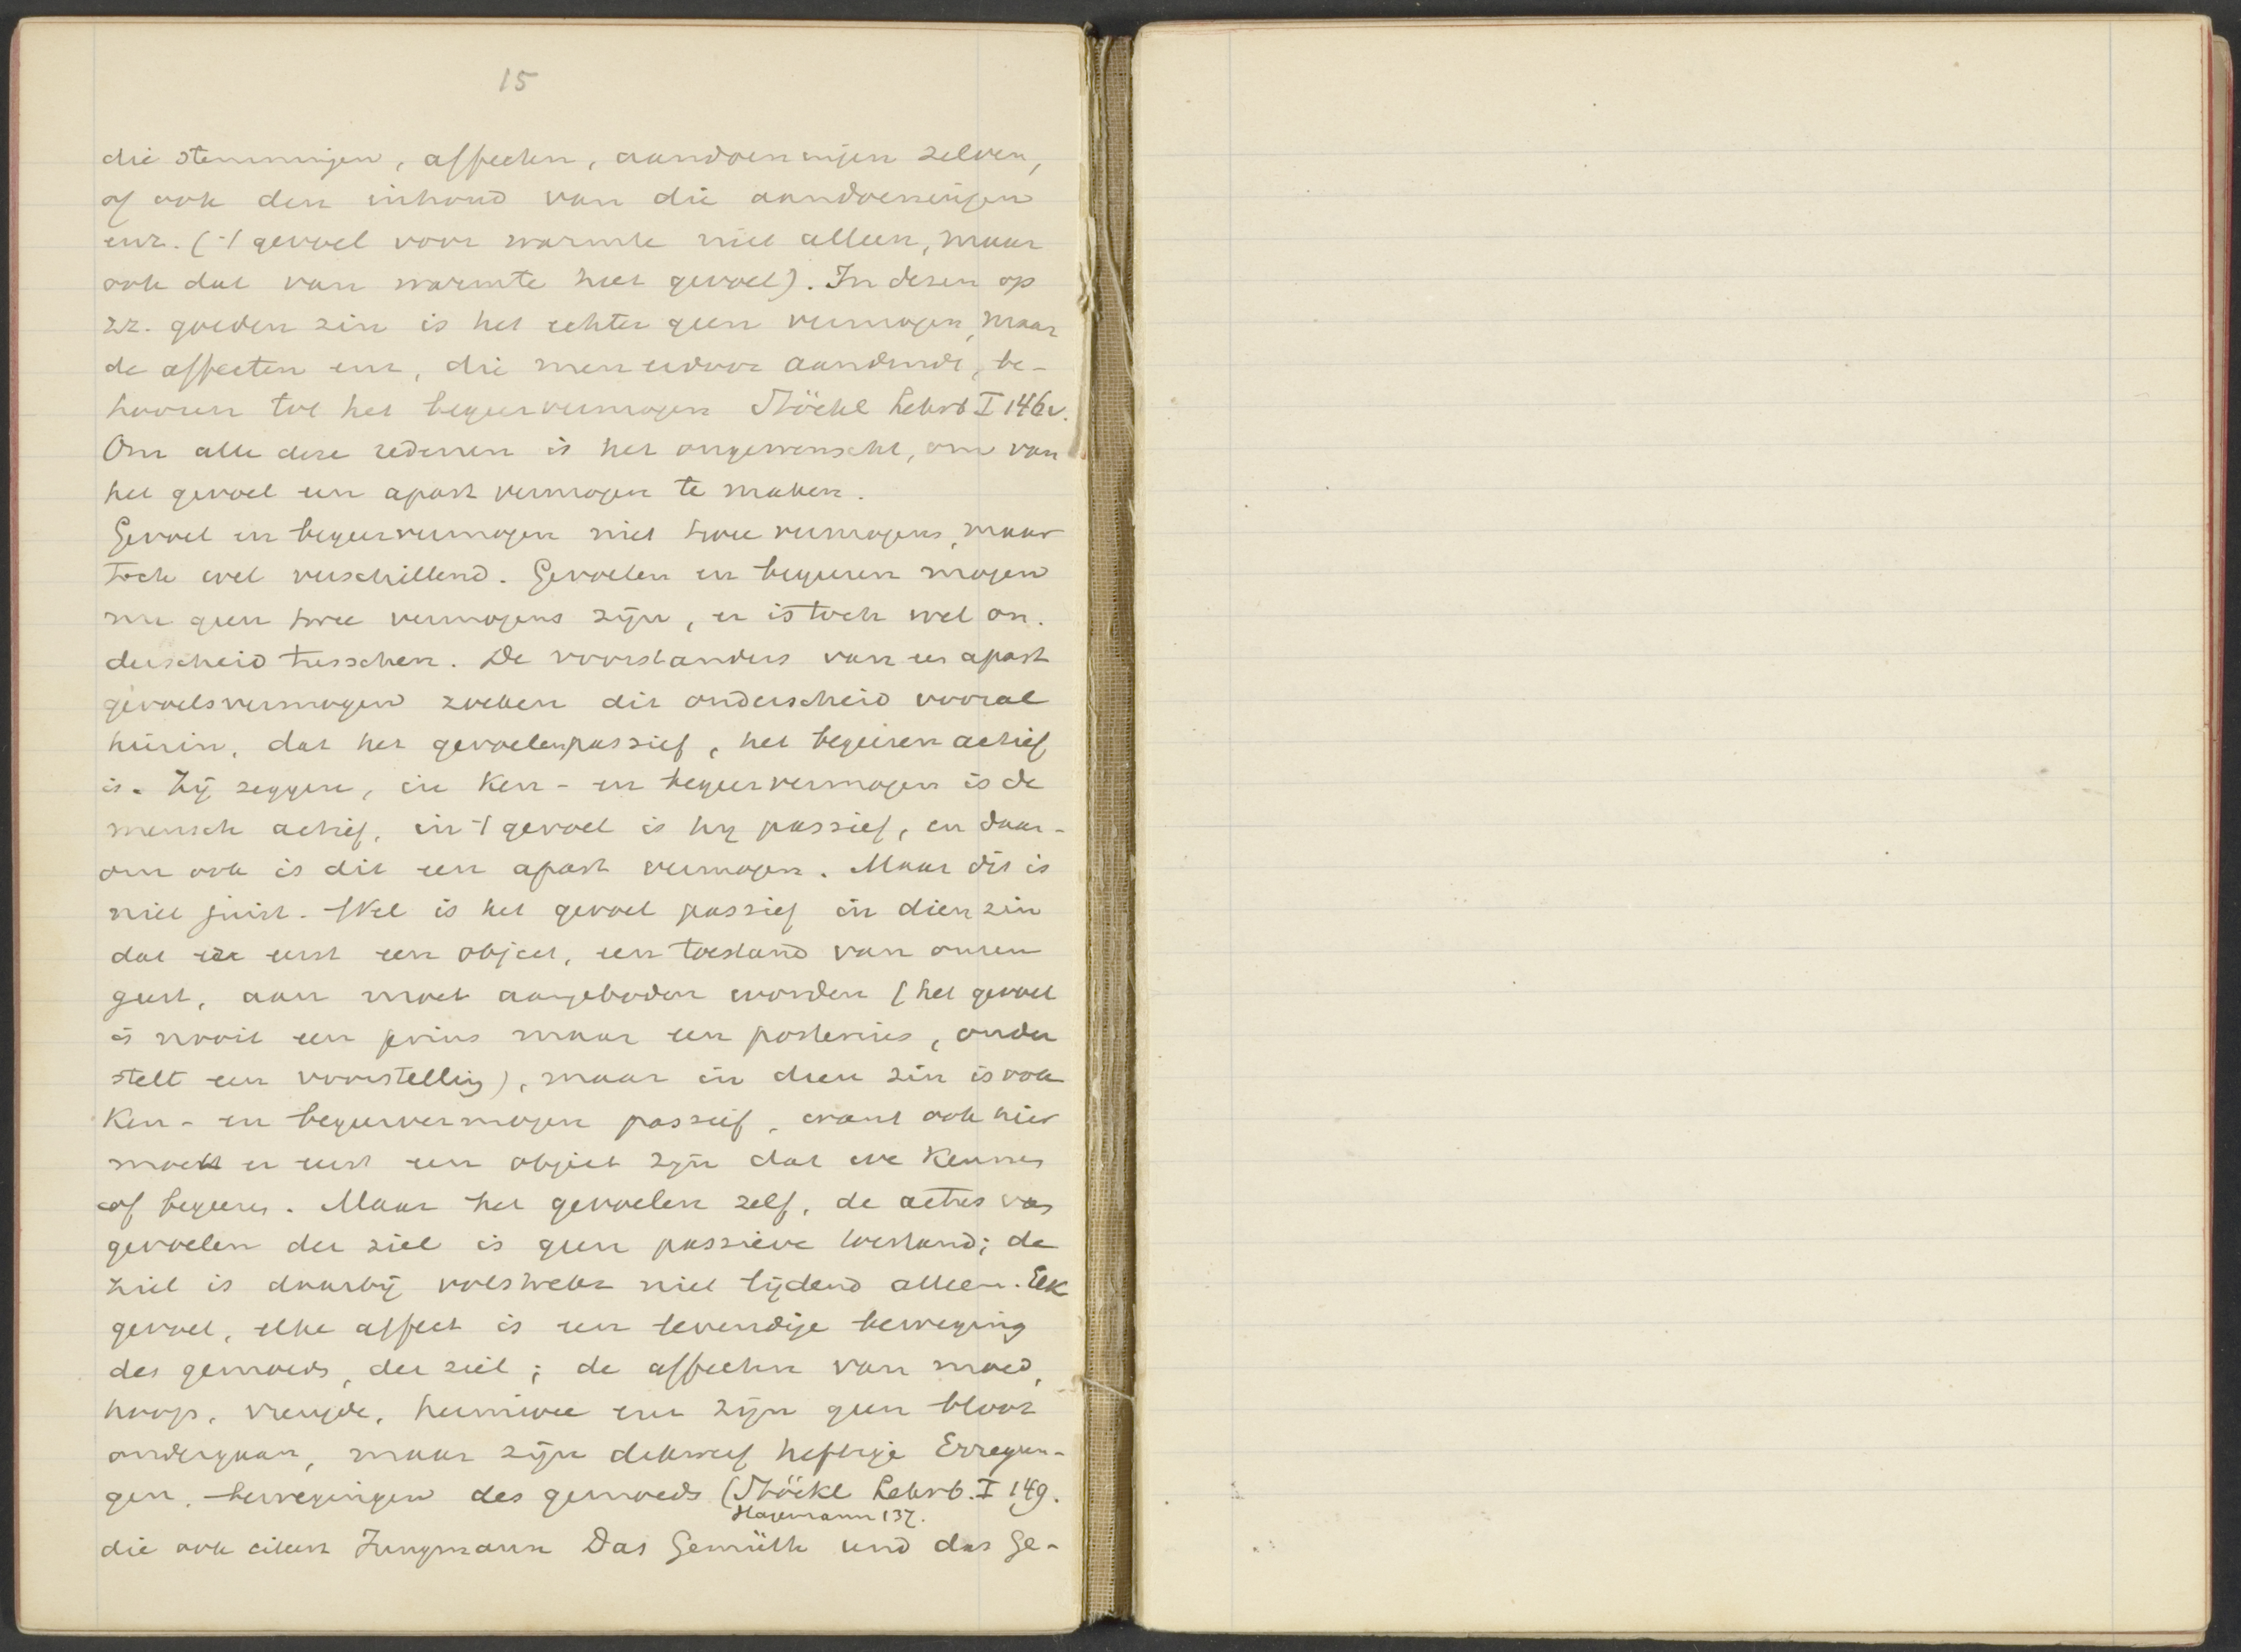 15
die stemmingen, affecten, aandoeningen zelven,
of ook den inhoud van die aandoeningen
enz. ('t gevoel voor warmte niet alleen, maar
ook dat van warmte heet gevoel). In dezen op
zz. goeden zin is het echter geen vermogen, maar
de affecten enz, die men erdoor aanduidt, be-
hooren tot het begeervermogen Stöckl Lehrb I 146v.
Om alle deze redenen is het ongewenscht, om van
het gevoel een apart vermogen te maken.
Gevoel en begeervermogen niet twee vermogens, maar
toch wel verschillend. Gevoelen en begeeren mogen
nu geen twee vermogens zijn, er is toch wel on-
derscheid tusschen. De voorstanders van een apart
gevoelsvermogen zoeken dit onderscheid vooral
hierin, dat het gevoelen passief, het begeeren actief
is. Zij zeggen, in ken- en begeervermogen is de
mensch actief, in 't gevoel is hij passief, en daar-
om ook is dit een apart vermogen. Maar dit is
niet juist. Wel is het gevoel passief in dien zin
dat er eerst een object, een toestand van onzen
geest, aan moet aangeboden worden (het gevoel
is nooit een prius maar een posterius, onder
stelt een voorstelling), maar in dien zin is ook
ken- en begeervermogen passief, want ook hier
moet er eerst een object zijn dat we kennen
of begeeren. Maar het gevoelen zelf, de acties van
gevoelen der ziel is geen passieve toestand; de
ziel is daarbij volstrekt niet lijdend alleen. Elk
gevoel, elke affect is een levendige beweging
des gemoeds, der ziel; de affecten van moed,
hoop, vreugde, heimwee enz zijn geen bloot
ondergaan, maar zijn dikwerf heftige Erregun-
gen, bewegingen des gemoeds (Stöckl Lehrb. I 149.
Hagemann 137.
die ook citeert Jungmann Das Gemüth und das Ge-